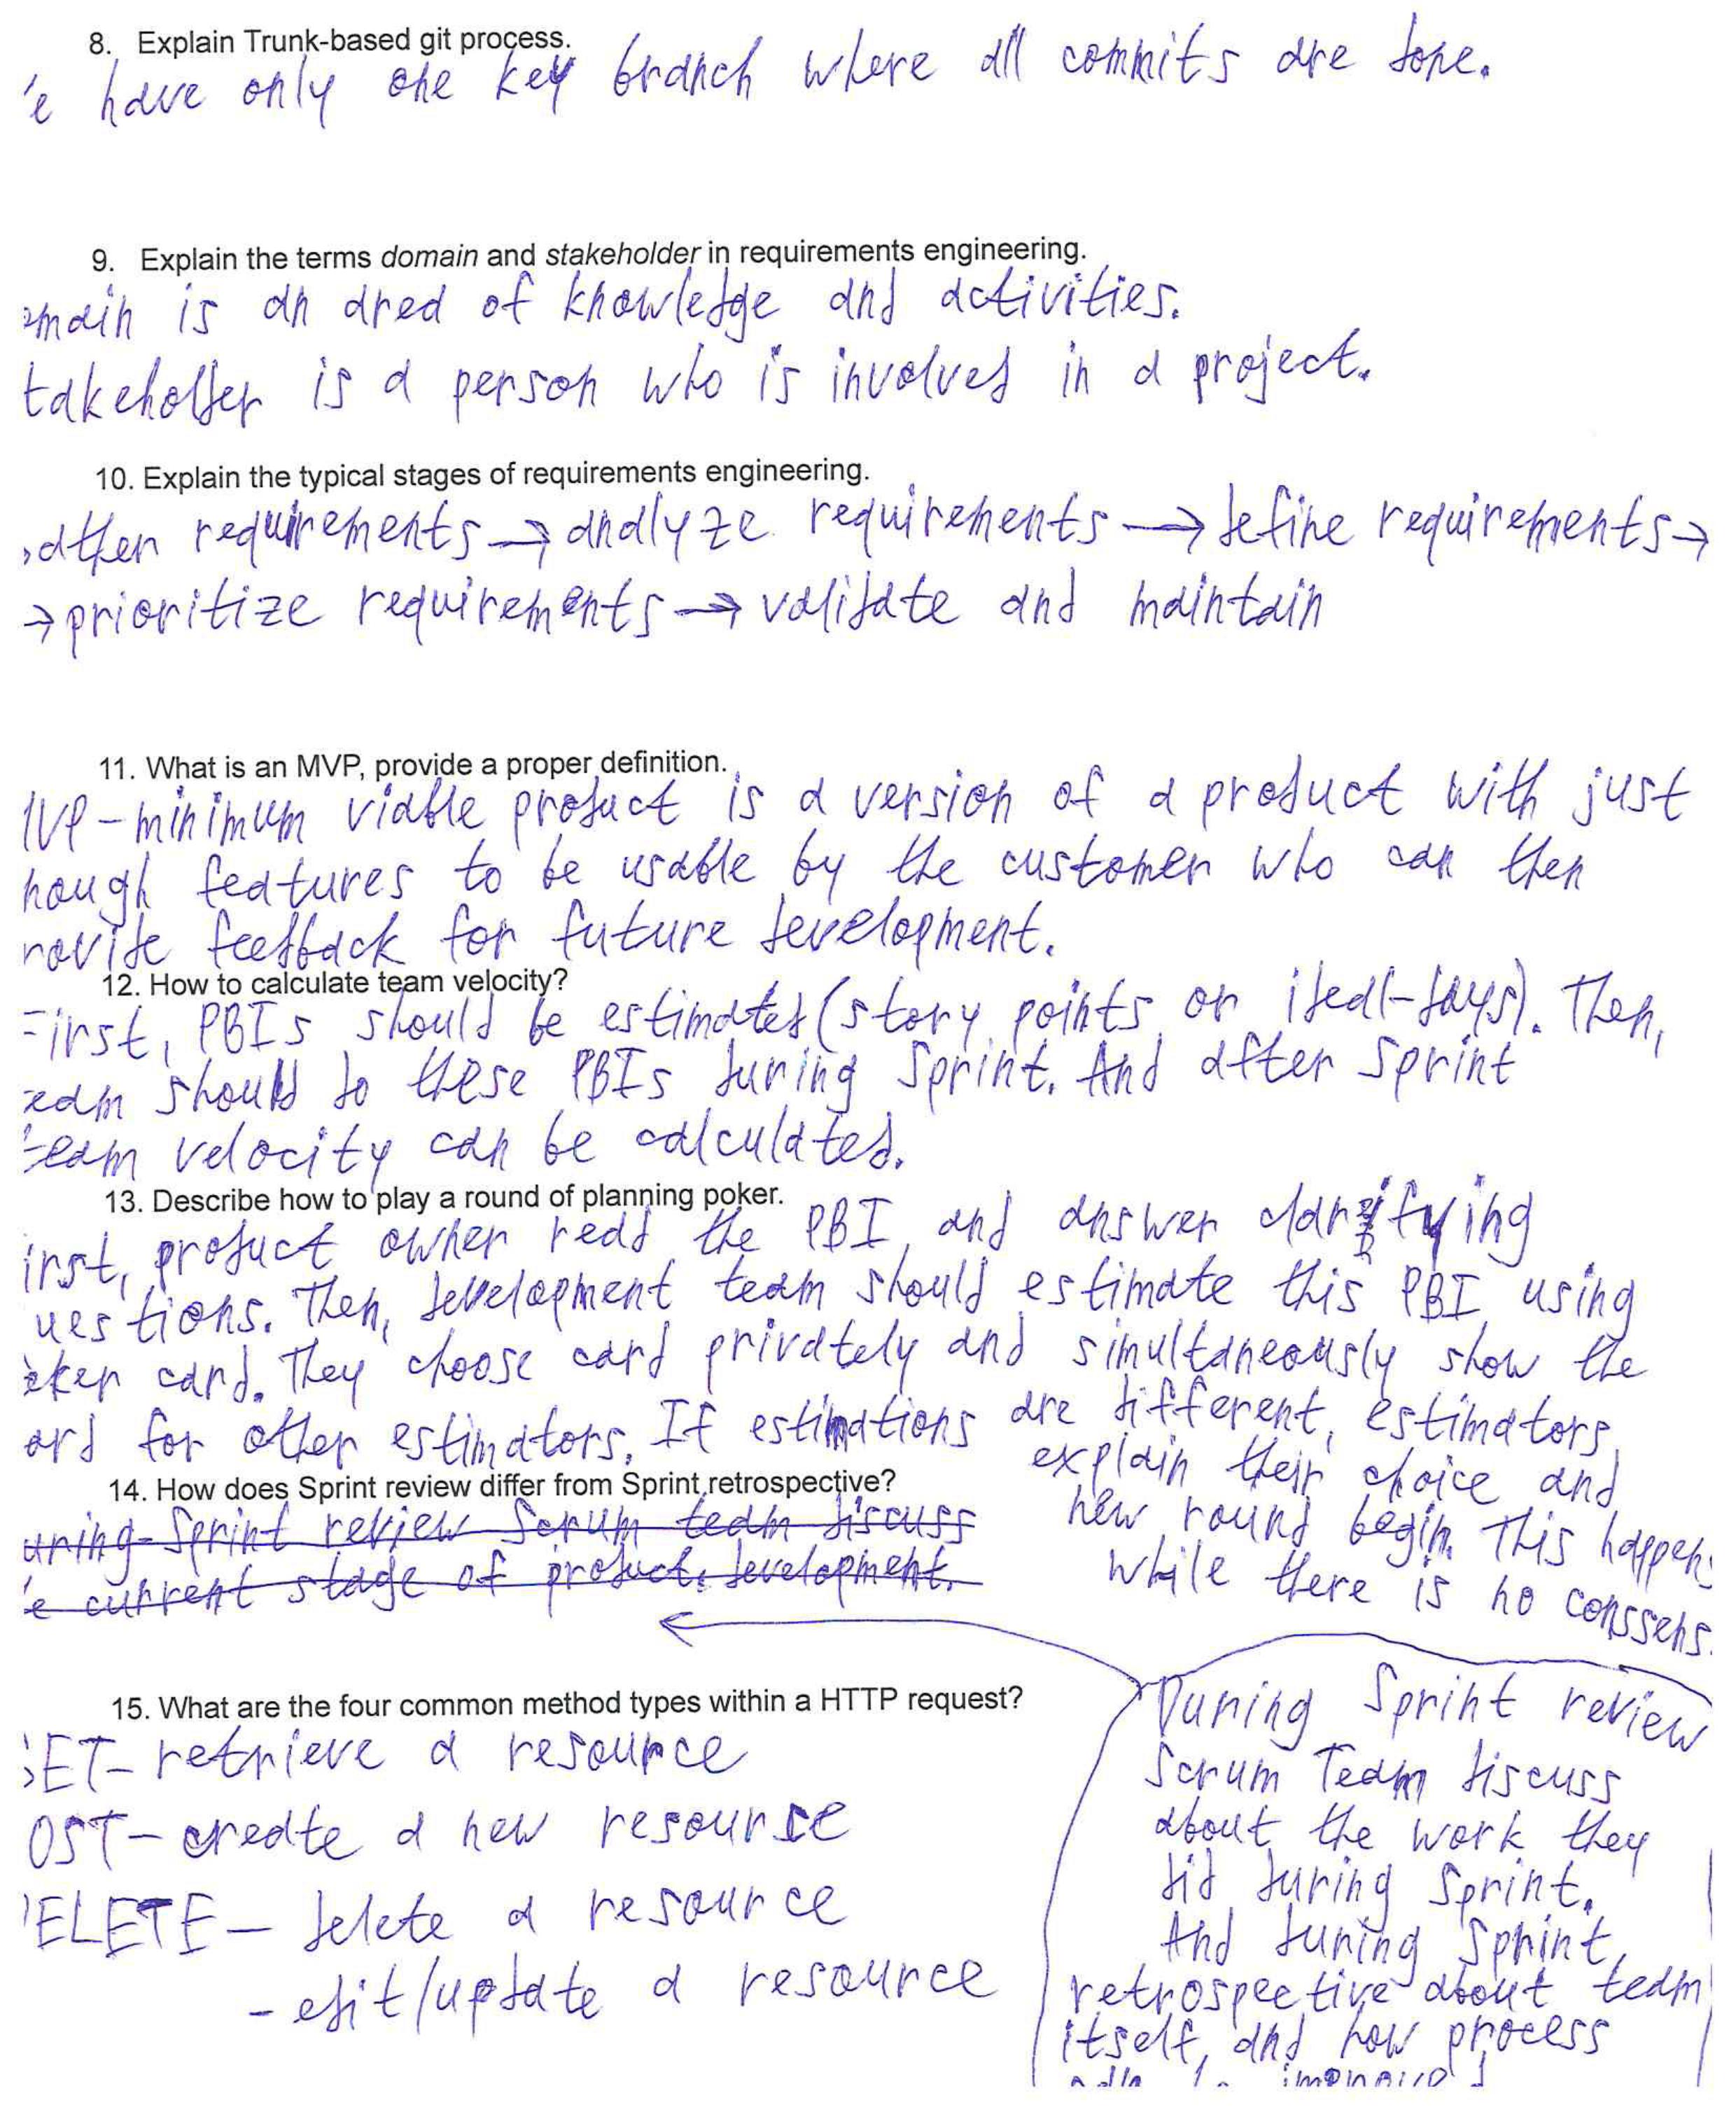 8. Explain Trunk-based git process.
e have only one key branch where all commits are done.
9. Explain the terms domain and stakeholder in requirements engineering.
omain is an area of knowledge and activities.
takeholder is a person who is involved in a project.
10. Explain the typical stages of requirements engineering.
ather requirements → analyze requirements → define requirements →
→ prioritize requirements → validate and maintain
11. What is an MVP, provide a proper definition.
MVP - minimum viable product is a version of a product with just
nough features to be usable by the customer who can then
rovide feedback for future development.
12. How to calculate team velocity?
First, PBIs should be estimated (story points or ideal-days). Then,
eam should do these PBIs during Sprint. And after Sprint
team velocity can be calculated.
13. Describe how to play a round of planning poker.
irst, product owner read the PBI and answer clarifying
uestions. Then, development team should estimate this PBI using
oker card. They choose card privately and simultaneously show the
ard for other estimators. If estimations are different, estimators
explain their choice and
new round begin. This happens
while there is no conssens.
14. How does Sprint review differ from Sprint retrospective?
uring Sprint review Scrum team discuss
e current stage of product development.
During Sprint review
Scrum Team discuss
about the work they
did during Sprint.
And during Sprint
retrospective about team
itself, and how process
improved
15. What are the four common method types within a HTTP request?
GET - retrieve a resource
OST - create a new resource
DELETE - delete a resource
- edit/update a resource